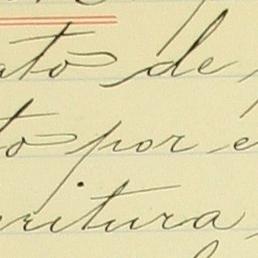 ato de
to por e
ritura